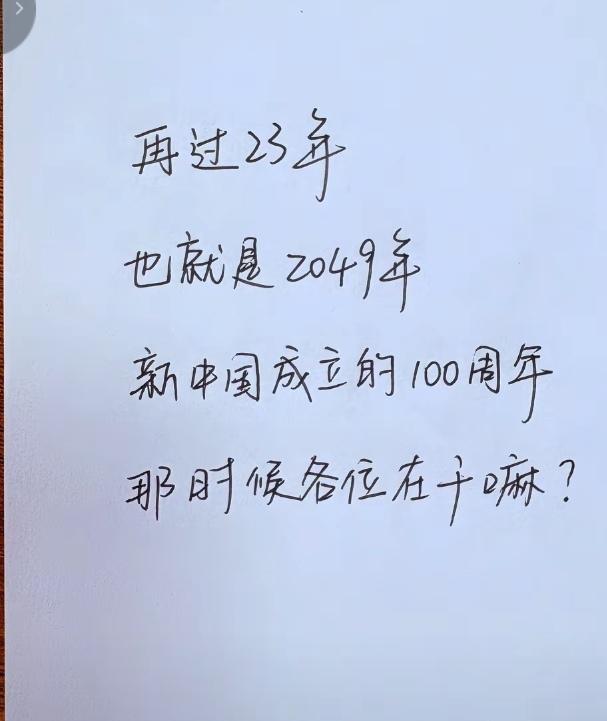 再过23年
也就是2049年
新中国成立的100周年
那时候各位在干嘛?